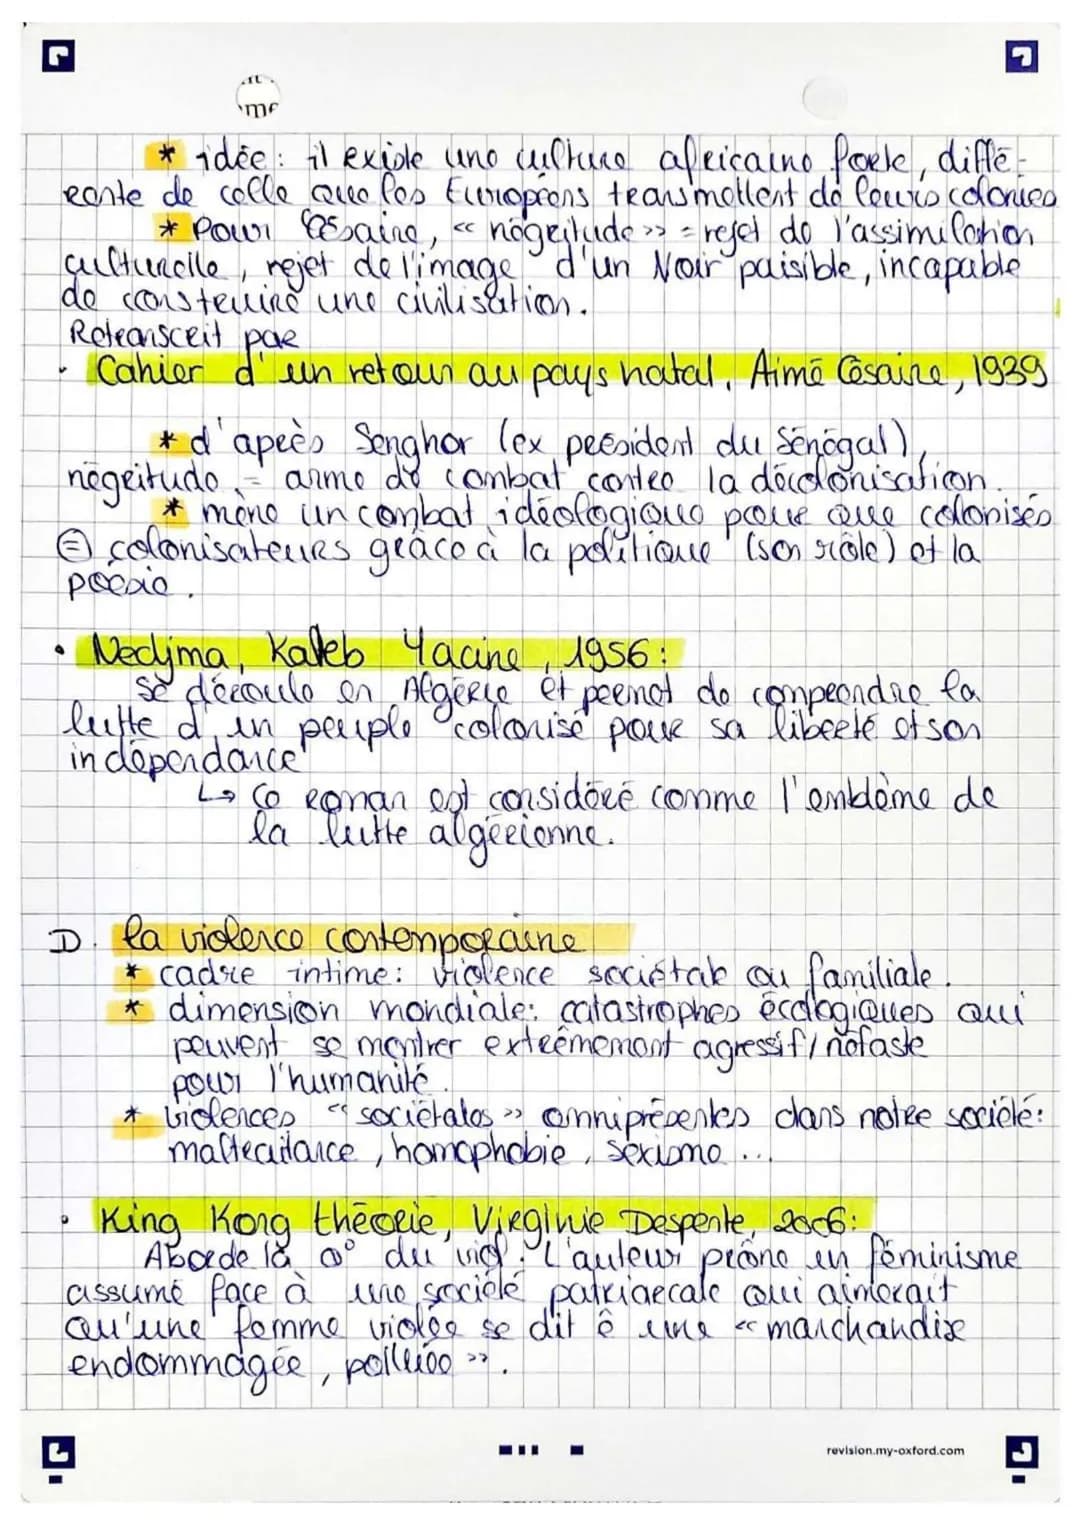 me
* idée : il existe une culture africaine forte, diffé-
rente de celle que les Européens transmettent de leurs colonies
* Pour Césaire, << négritude >> = rejet de l'assimilation
culturelle, rejet de l'image d'un Noir paisible, incapable
de construire une civilisation.
Retranscrit par
• Cahier d'un retour au pays natal, Aimé Césaire, 1939
* d'après Senghor (ex président du Sénégal),
négritude = arme de combat contre la décolonisation.
* mène un combat idéologique pour que colonisés
= colonisateurs grâce à la politique (son rôle) et la
poésie.
• Nedjma, Kateb Yacine, 1956 :
Se déroule en Algérie et permet de comprendre la
lutte d'un peuple colonisé pour sa liberté et son
indépendance
↳ Ce roman est considéré comme l'emblème de
la lutte algérienne.
D. la violence contemporaine
* cadre intime : violence sociétale ou familiale.
* dimension mondiale : catastrophes écologiques qui
peuvent se montrer extrêmement agressif / néfaste
pour l'humanité.
* violences << sociétales >> omniprésentes dans notre société :
maltraitance, homophobie, sexisme ...
• King Kong théorie, Virginie Despente, 2006 :
Aborde la q° du viol. L'auteur prône un féminisme
assumé face à une société patriarcale qui aimerait
qu'une femme violée se dit ê une << marchandise
endommagée, polluée >>.
revision.my-oxford.com